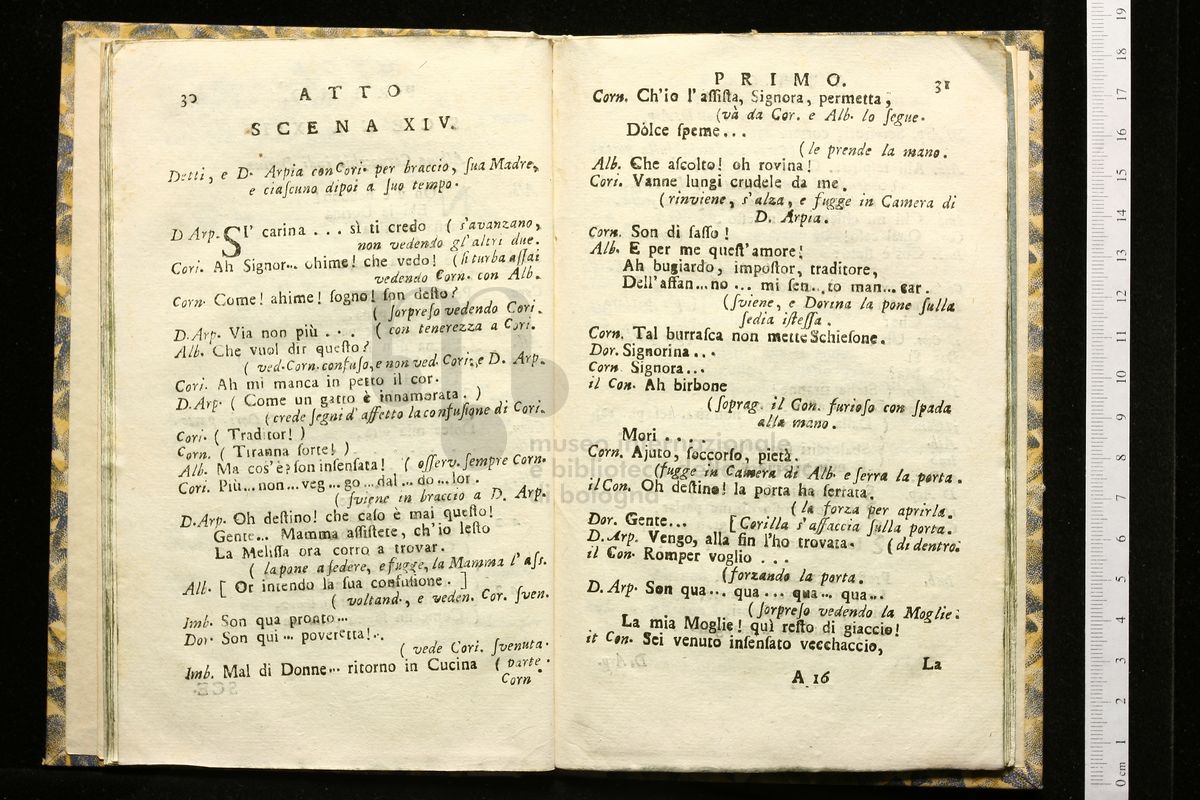 30 ATTO
SCENA XIV.
Detti, e D. Arpia con Cori. per braccio, ſua Madre,
e ciaſcuno dipoi a ſuo tempo.
D Arp. SI' carina . . . sì ti credo ( s'avanzano,
non vedendo gl'altri due.
Cori. Ah Signor... ohime! che vedo! (ſi turba aſſai
vedendo Corn. con Alb.
Corn. Come! ahime! ſogno! ſon deſto?
( ſorpreſo vedendo Cori.
D.Arp. Via non più . . . ( con tenerezza a Cori.
Alb. Che vuol dir queſto?
( ved. Corn. confuſo, e non ved. Cori., e D. Arp.
Cori. Ah mi manca in petto il cor.
D.Arp. ( Come un gatto è innamorata. )
(crede ſegni d'affetto la confuſione di Cori.
Cori. ( Traditor! )
Corn. ( Tiranna ſorte! )
Alb. Ma cos'è? ſon inſenſata! ( oſſerv. ſempre Corn.
Cori. Più...non...veg...go...dal...do...lor.
( ſviene in braccio a D. Arp.
D.Arp. Oh deſtino! che caſo è mai queſto!
Gente... Mamma aſſiſtete, ch'io leſto
La Meliſſa ora corro a trovar.
( la pone a ſedere, e fugge, la Mamma l'aſſ.
Alb. [ Or intendo la ſua confuſione. ]
( voltand., e veden. Cor. ſven.
Imb. Son qua pronto...
Dor. Son qui... poveretta!..
( vede Cori. ſvenuta.
Imb. Mal di Donne... ritorno in Cucina ( parte.
Corn
PRIMO. 31
Corn. Ch'io l'aſſiſta, Signora, permetta,
(và da Cor. e Alb. lo ſegue.
Dòlce ſpeme...
(le prende la mano.
Alb. Che aſcolto! oh rovina!
Cori. Vanne lungi crudele da me.
(rinviene, s'alza, e fugge in Camera di
D. Arpia.
Corn. Son di ſaſſo!
Alb. E per me queſt'amore!
Ah bugiardo, impoſtor, traditore,
Dell'affan...no ... mi ſen...to man...car.
(ſviene, e Dorina la pone ſulla
ſedia iſteſſa.
Corn. Tal burraſca non mette Schieſone.
Dor. Signorina...
Corn Signora...
il Con. Ah birbone
(ſoprag. il Con. furioſo con ſpada
alla mano.
Mori . . . .
Corn. Ajuto, ſoccorſo, pietà.
(fugge in Camera di Alb. e ſerra la porta.
il Con. Oh deſtino! la porta ha ſerrata.
( la forza per aprirla.
Dor. Gente... [ Corilla s'affaccia ſulla porta.
D.Arp. Vengo, alla fin l'ho trovata. (di dentro.
il Con. Romper voglio . . .
(forzando la porta.
D.Arp. Son qua... qua ... qua... qua...
(ſorpreſo vedendo la Moglie.
La mia Moglie! quì reſto di giaccio!
il Con. Sei venuto inſenſato vecchaccio,
La
A 16
museo internazionale
e biblioteca della musica
di bologna